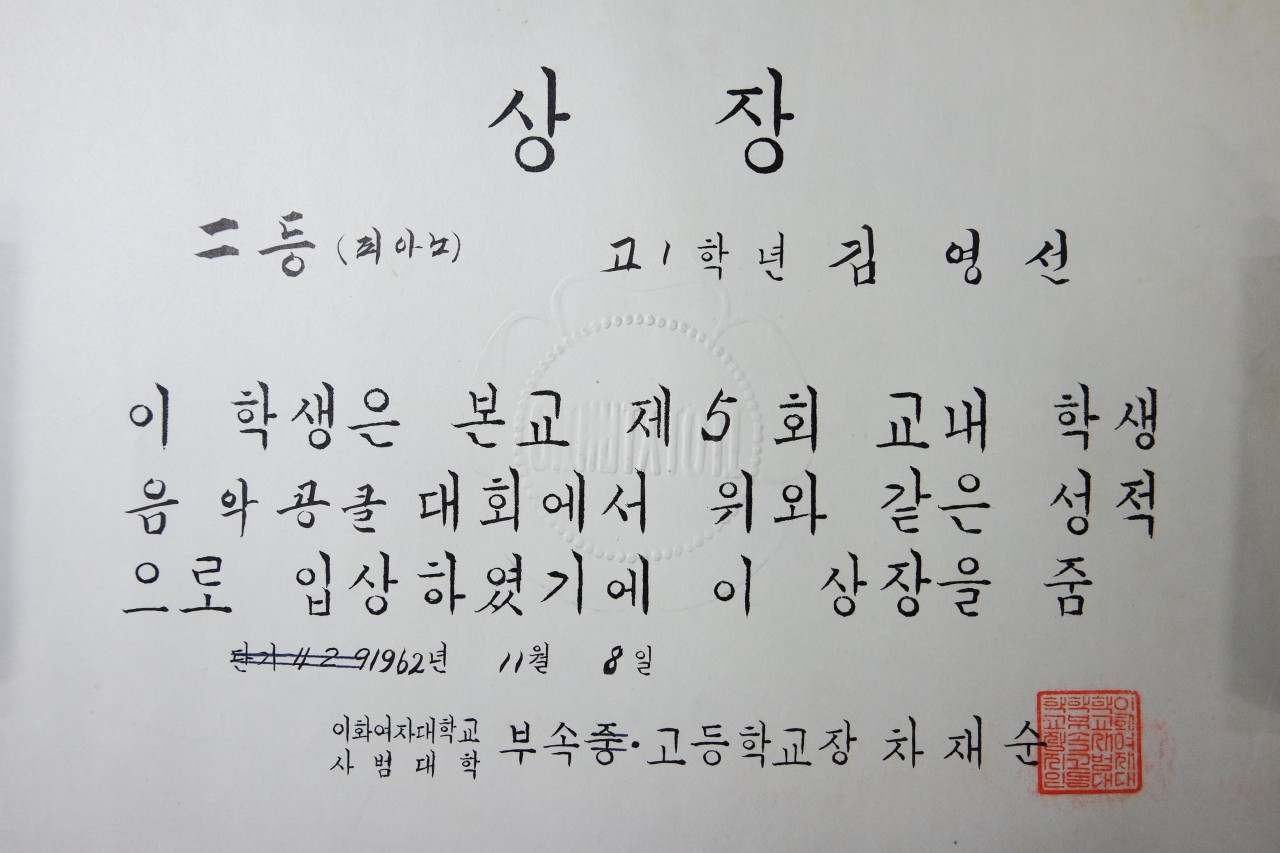 상장
二등 (피아노) 고 1 학년 김영선
이 학생은 본교 제 5 회 교내 학생
음악콩쿨대회에서 위와 같은 성적
으로 입상하였기에 이 상장을 줌
단기 4291962년 11월 8일
이화여자대학교
사범대학
부속중·고등학교장 차재순